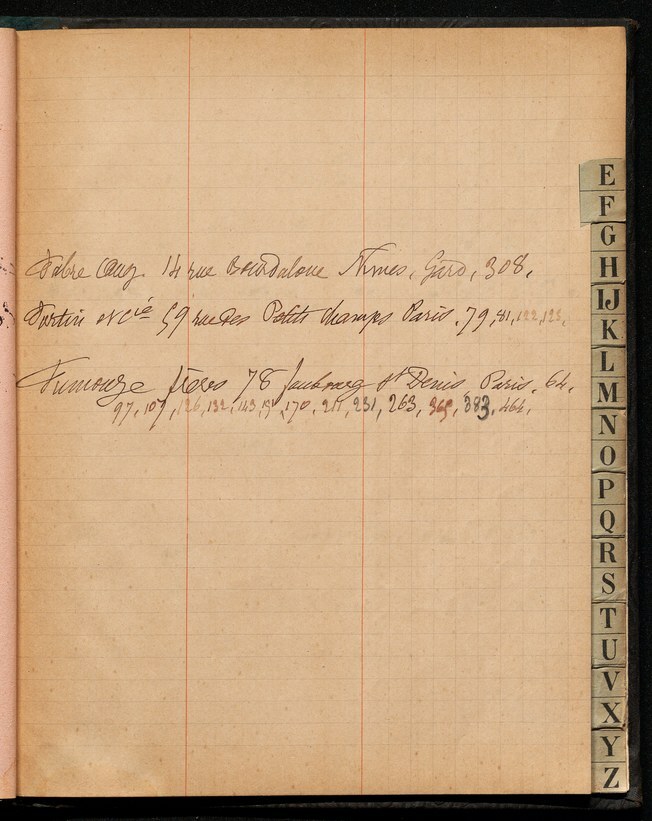 Fabre Aug. 14 rue Bourdaloue Nimes, Gard, 308,
Fortin et Cie 59 rue des Petits champs Paris. 79, 81, 122, 123,
Fumouze frères 78 faubourg St Denis, Paris. 64,
97, 107, 126, 132, 143, 170, 231, 263, 365, 383, 464,
E
F
G
H
IJ
K
L
M
N
O
P
Q
R
S
T
U
V
X
Y
Z